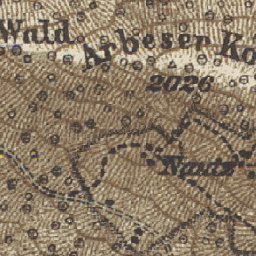 Wald
Arbeser Ko
2026
Nautz